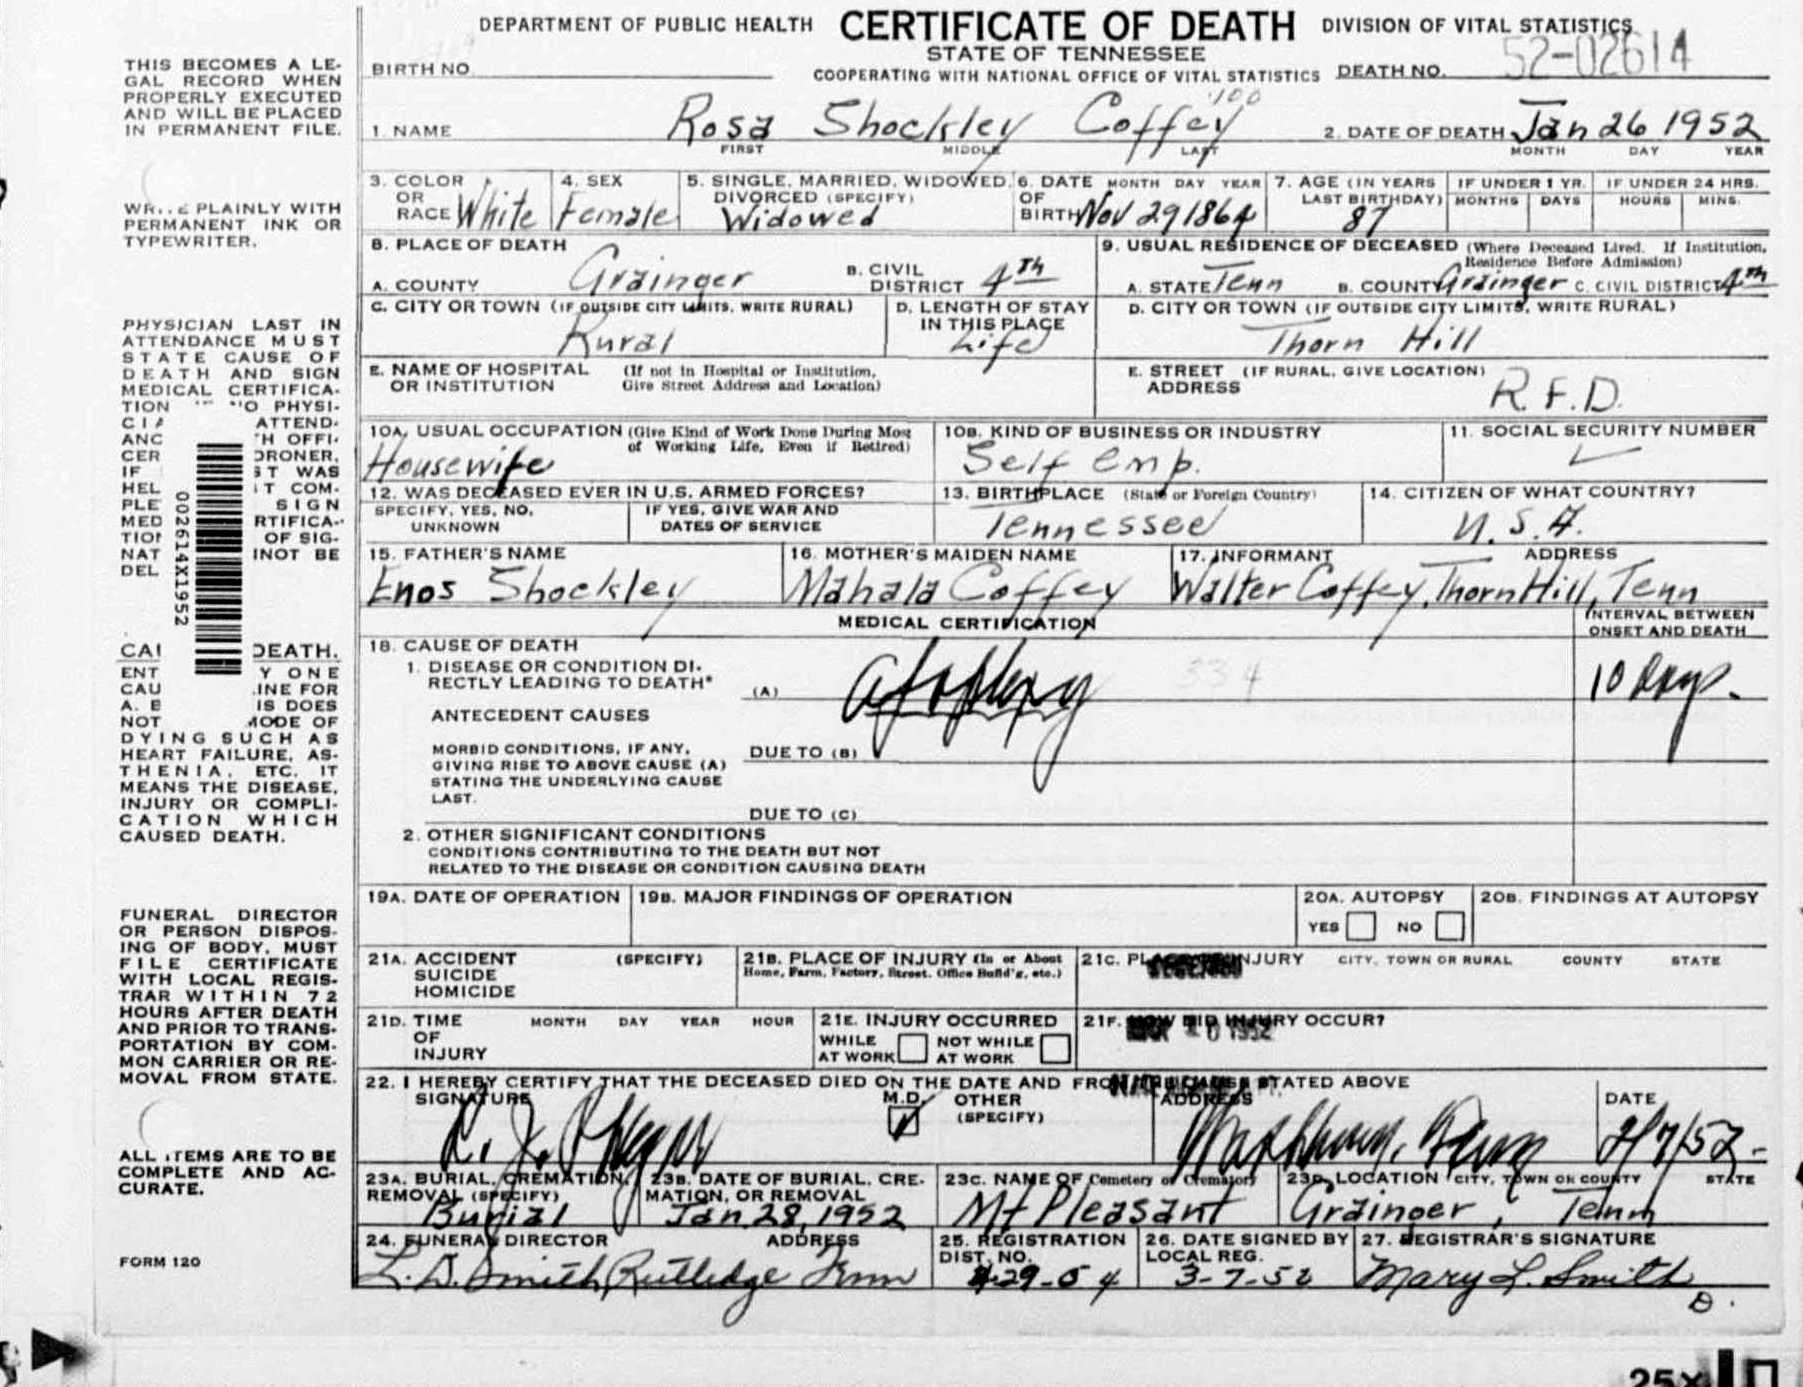 DEPARTMENT OF PUBLIC HEALTH CERTIFICATE OF DEATH DIVISION OF VITAL STATISTICS
STATE OF TENNESSEE
COOPERATING WITH NATIONAL OFFICE OF VITAL STATISTICS
BIRTH NO. DEATH NO. 52-02614
100
1. NAME Rosa Shockley Coffey 2. DATE OF DEATH Jan 26 1952
FIRST MIDDLE LAST MONTH DAY YEAR
3. COLOR OR RACE White
4. SEX Female
5. SINGLE, MARRIED, WIDOWED, DIVORCED (SPECIFY) Widowed
6. DATE OF BIRTH MONTH DAY YEAR Nov 29 1864
7. AGE (IN YEARS LAST BIRTHDAY) 87
IF UNDER 1 YR. MONTHS DAYS
IF UNDER 24 HRS. HOURS MINS.
8. PLACE OF DEATH
A. COUNTY Grainger B. CIVIL DISTRICT 4th
9. USUAL RESIDENCE OF DECEASED (Where Deceased Lived. If Institution, Residence Before Admission)
A. STATE Tenn B. COUNTY Grainger C. CIVIL DISTRICT 4th
C. CITY OR TOWN (IF OUTSIDE CITY LIMITS, WRITE RURAL)
Rural
D. LENGTH OF STAY IN THIS PLACE
Life
D. CITY OR TOWN (IF OUTSIDE CITY LIMITS, WRITE RURAL)
Thorn Hill
E. NAME OF HOSPITAL OR INSTITUTION (If not in Hospital or Institution, Give Street Address and Location)
E. STREET ADDRESS (IF RURAL, GIVE LOCATION)
R.F.D.
10A. USUAL OCCUPATION (Give Kind of Work Done During Most of Working Life, Even if Retired)
Housewife
10B. KIND OF BUSINESS OR INDUSTRY
Self emp.
11. SOCIAL SECURITY NUMBER
12. WAS DECEASED EVER IN U.S. ARMED FORCES?
SPECIFY, YES, NO, UNKNOWN
IF YES, GIVE WAR AND DATES OF SERVICE
13. BIRTHPLACE (State or Foreign Country)
Tennessee
14. CITIZEN OF WHAT COUNTRY?
U.S.A.
15. FATHER'S NAME
Enos Shockley
16. MOTHER'S MAIDEN NAME
Mahala Coffey
17. INFORMANT ADDRESS
Walter Coffey, Thorn Hill, Tenn
MEDICAL CERTIFICATION
INTERVAL BETWEEN ONSET AND DEATH
18. CAUSE OF DEATH
1. DISEASE OR CONDITION DIRECTLY LEADING TO DEATH* (A) Apoplexy 334 10 Days.
ANTECEDENT CAUSES
MORBID CONDITIONS, IF ANY, GIVING RISE TO ABOVE CAUSE (A) STATING THE UNDERLYING CAUSE LAST.
DUE TO (B)
DUE TO (C)
2. OTHER SIGNIFICANT CONDITIONS
CONDITIONS CONTRIBUTING TO THE DEATH BUT NOT
RELATED TO THE DISEASE OR CONDITION CAUSING DEATH
19A. DATE OF OPERATION
19B. MAJOR FINDINGS OF OPERATION
20A. AUTOPSY
YES NO
20B. FINDINGS AT AUTOPSY
21A. ACCIDENT SUICIDE HOMICIDE (SPECIFY)
21B. PLACE OF INJURY (In or About Home, Farm, Factory, Street, Office Build'g, etc.)
21C. PLACE OF INJURY CITY, TOWN OR RURAL COUNTY STATE
21D. TIME OF INJURY MONTH DAY YEAR HOUR
21E. INJURY OCCURRED
WHILE AT WORK NOT WHILE AT WORK
21F. HOW DID INJURY OCCUR?
1952
22. I HEREBY CERTIFY THAT THE DECEASED DIED ON THE DATE AND FROM THE CAUSE STATED ABOVE
SIGNATURE M.D. OTHER (SPECIFY) ADDRESS DATE
Washburn, Tenn 2/7/52
23A. BURIAL, CREMATION, REMOVAL (SPECIFY)
Burial
23B. DATE OF BURIAL, CREMATION, OR REMOVAL
Jan 28, 1952
23C. NAME OF Cemetery or Crematory
Mt Pleasant
23D. LOCATION CITY, TOWN OR COUNTY STATE
Grainger, Tenn
24. FUNERAL DIRECTOR ADDRESS
L.D. Smith, Rutledge Tenn
25. REGISTRATION DIST. NO.
29-04
26. DATE SIGNED BY LOCAL REG.
3-7-52
27. REGISTRAR'S SIGNATURE
Mary L. Smith
D.
THIS BECOMES A LE-
GAL RECORD WHEN
PROPERLY EXECUTED
AND WILL BE PLACED
IN PERMANENT FILE.
PLAINLY WITH
PERMANENT INK OR
TYPEWRITER.
PHYSICIAN LAST IN
ATTENDANCE MUST
STATE CAUSE OF
DEATH AND SIGN
MEDICAL CERTIFICA-
TION PHYSI-
ATTEND-
OFFI-
CER
IF WAS
COM-
SIGN
MED RTIFICA-
OF SIG-
NAT NOT BE
DEL
002614X1952
DEATH.
ENT Y ONE
CAU LINE FOR
A. IS DOES
NOT MODE OF
DYING SUCH AS
HEART FAILURE, AS-
THENIA, ETC. IT
MEANS THE DISEASE,
INJURY OR COMPLI-
CATION WHICH
CAUSED DEATH.
FUNERAL DIRECTOR
OR PERSON DISPOS-
ING OF BODY, MUST
FILE CERTIFICATE
WITH LOCAL REGIS-
TRAR WITHIN 72
HOURS AFTER DEATH
AND PRIOR TO TRANS-
PORTATION BY COM-
MON CARRIER OR RE-
MOVAL FROM STATE.
ALL ITEMS ARE TO BE
COMPLETE AND AC-
CURATE.
FORM 120
25X